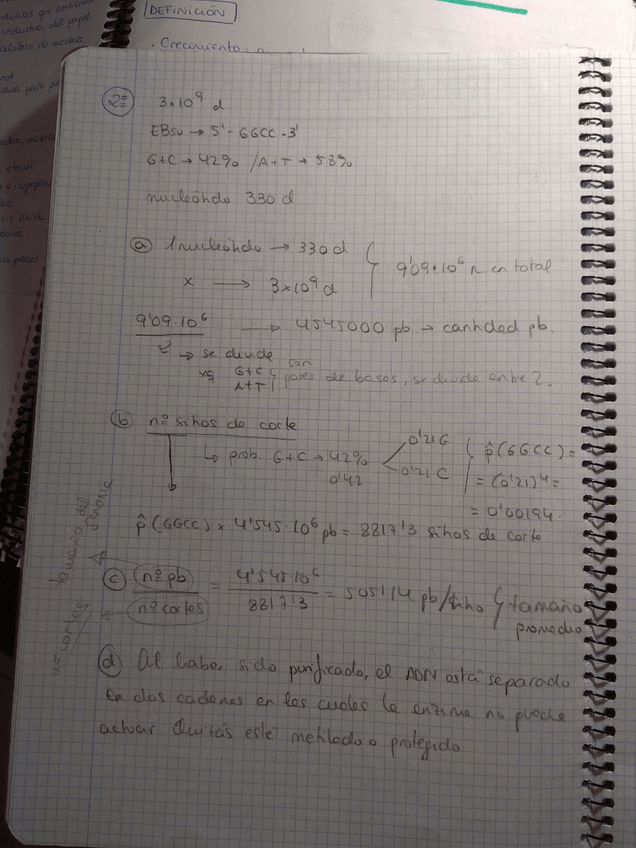 duales que contienen
inductivo del papel
celulosa de
DEFINICIÓN
· Crecimiento
2º
3×10⁹ d
EBsu → 5'-GGCC-3'
G+C → 42% / A+T → 58%
nucleótido 330 d
a 1 nucleótido → 330 d
x → 3×10⁹ d
9'09·10⁶ n en total
9'09·10⁶ / 2 → 4545000 pb → cantidad pb.
→ se divide
xq G+C A+T son pares de bases, se divide entre 2.
b nº sitios de corte
↳ prob. G+C → 42%
0'42
0'21 G
0'21 C
p̂(GGCC) =
= (0'21)⁴ =
= 0'00194.
p̂(GGCC) × 4'545·10⁶ pb = 8817'3 sitios de corte
tamaño del genoma
nº cortes
c nº pb / nº cortes = 4'545·10⁶ / 8817'3 = 505'14 pb/sitio } tamaño
promedio
d Al haber sido purificado, el ADN está separado
en dos cadenas en las cuales la enzima no puede
actuar. Quizás esté metilado o protegido